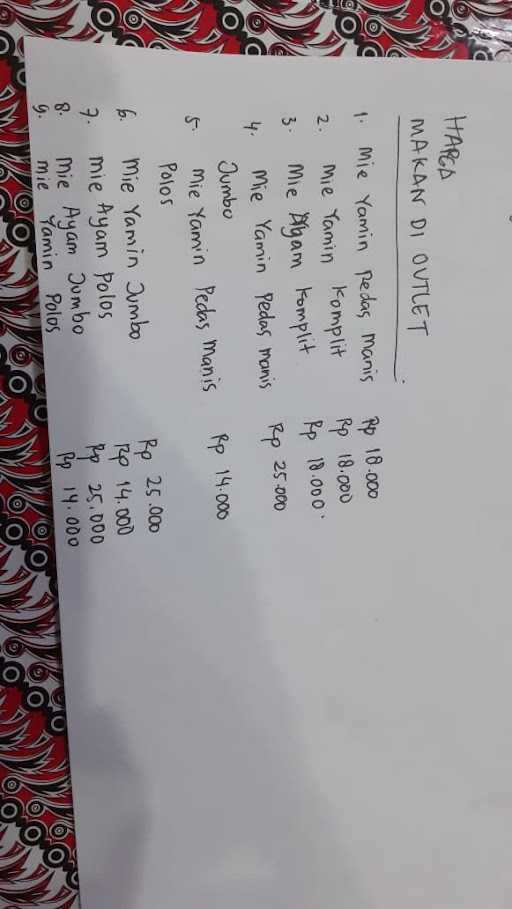 HARGA
MAKAN DI OUTLET
1. Mie Yamin Pedas manis Rp 18.000
2. Mie Yamin Komplit Rp 18.000
3. Mie Ayam Komplit Rp 18.000.
4. Mie Yamin Pedas manis Rp 25.000
Jumbo
5. Mie Yamin Pedas manis Rp 14.000
Polos
6. Mie Yamin Jumbo Rp 25.000
7. Mie Ayam Polos Rp 14.000
8. Mie Ayam Jumbo Rp 25.000
9. Mie Yamin Polos Rp 14.000